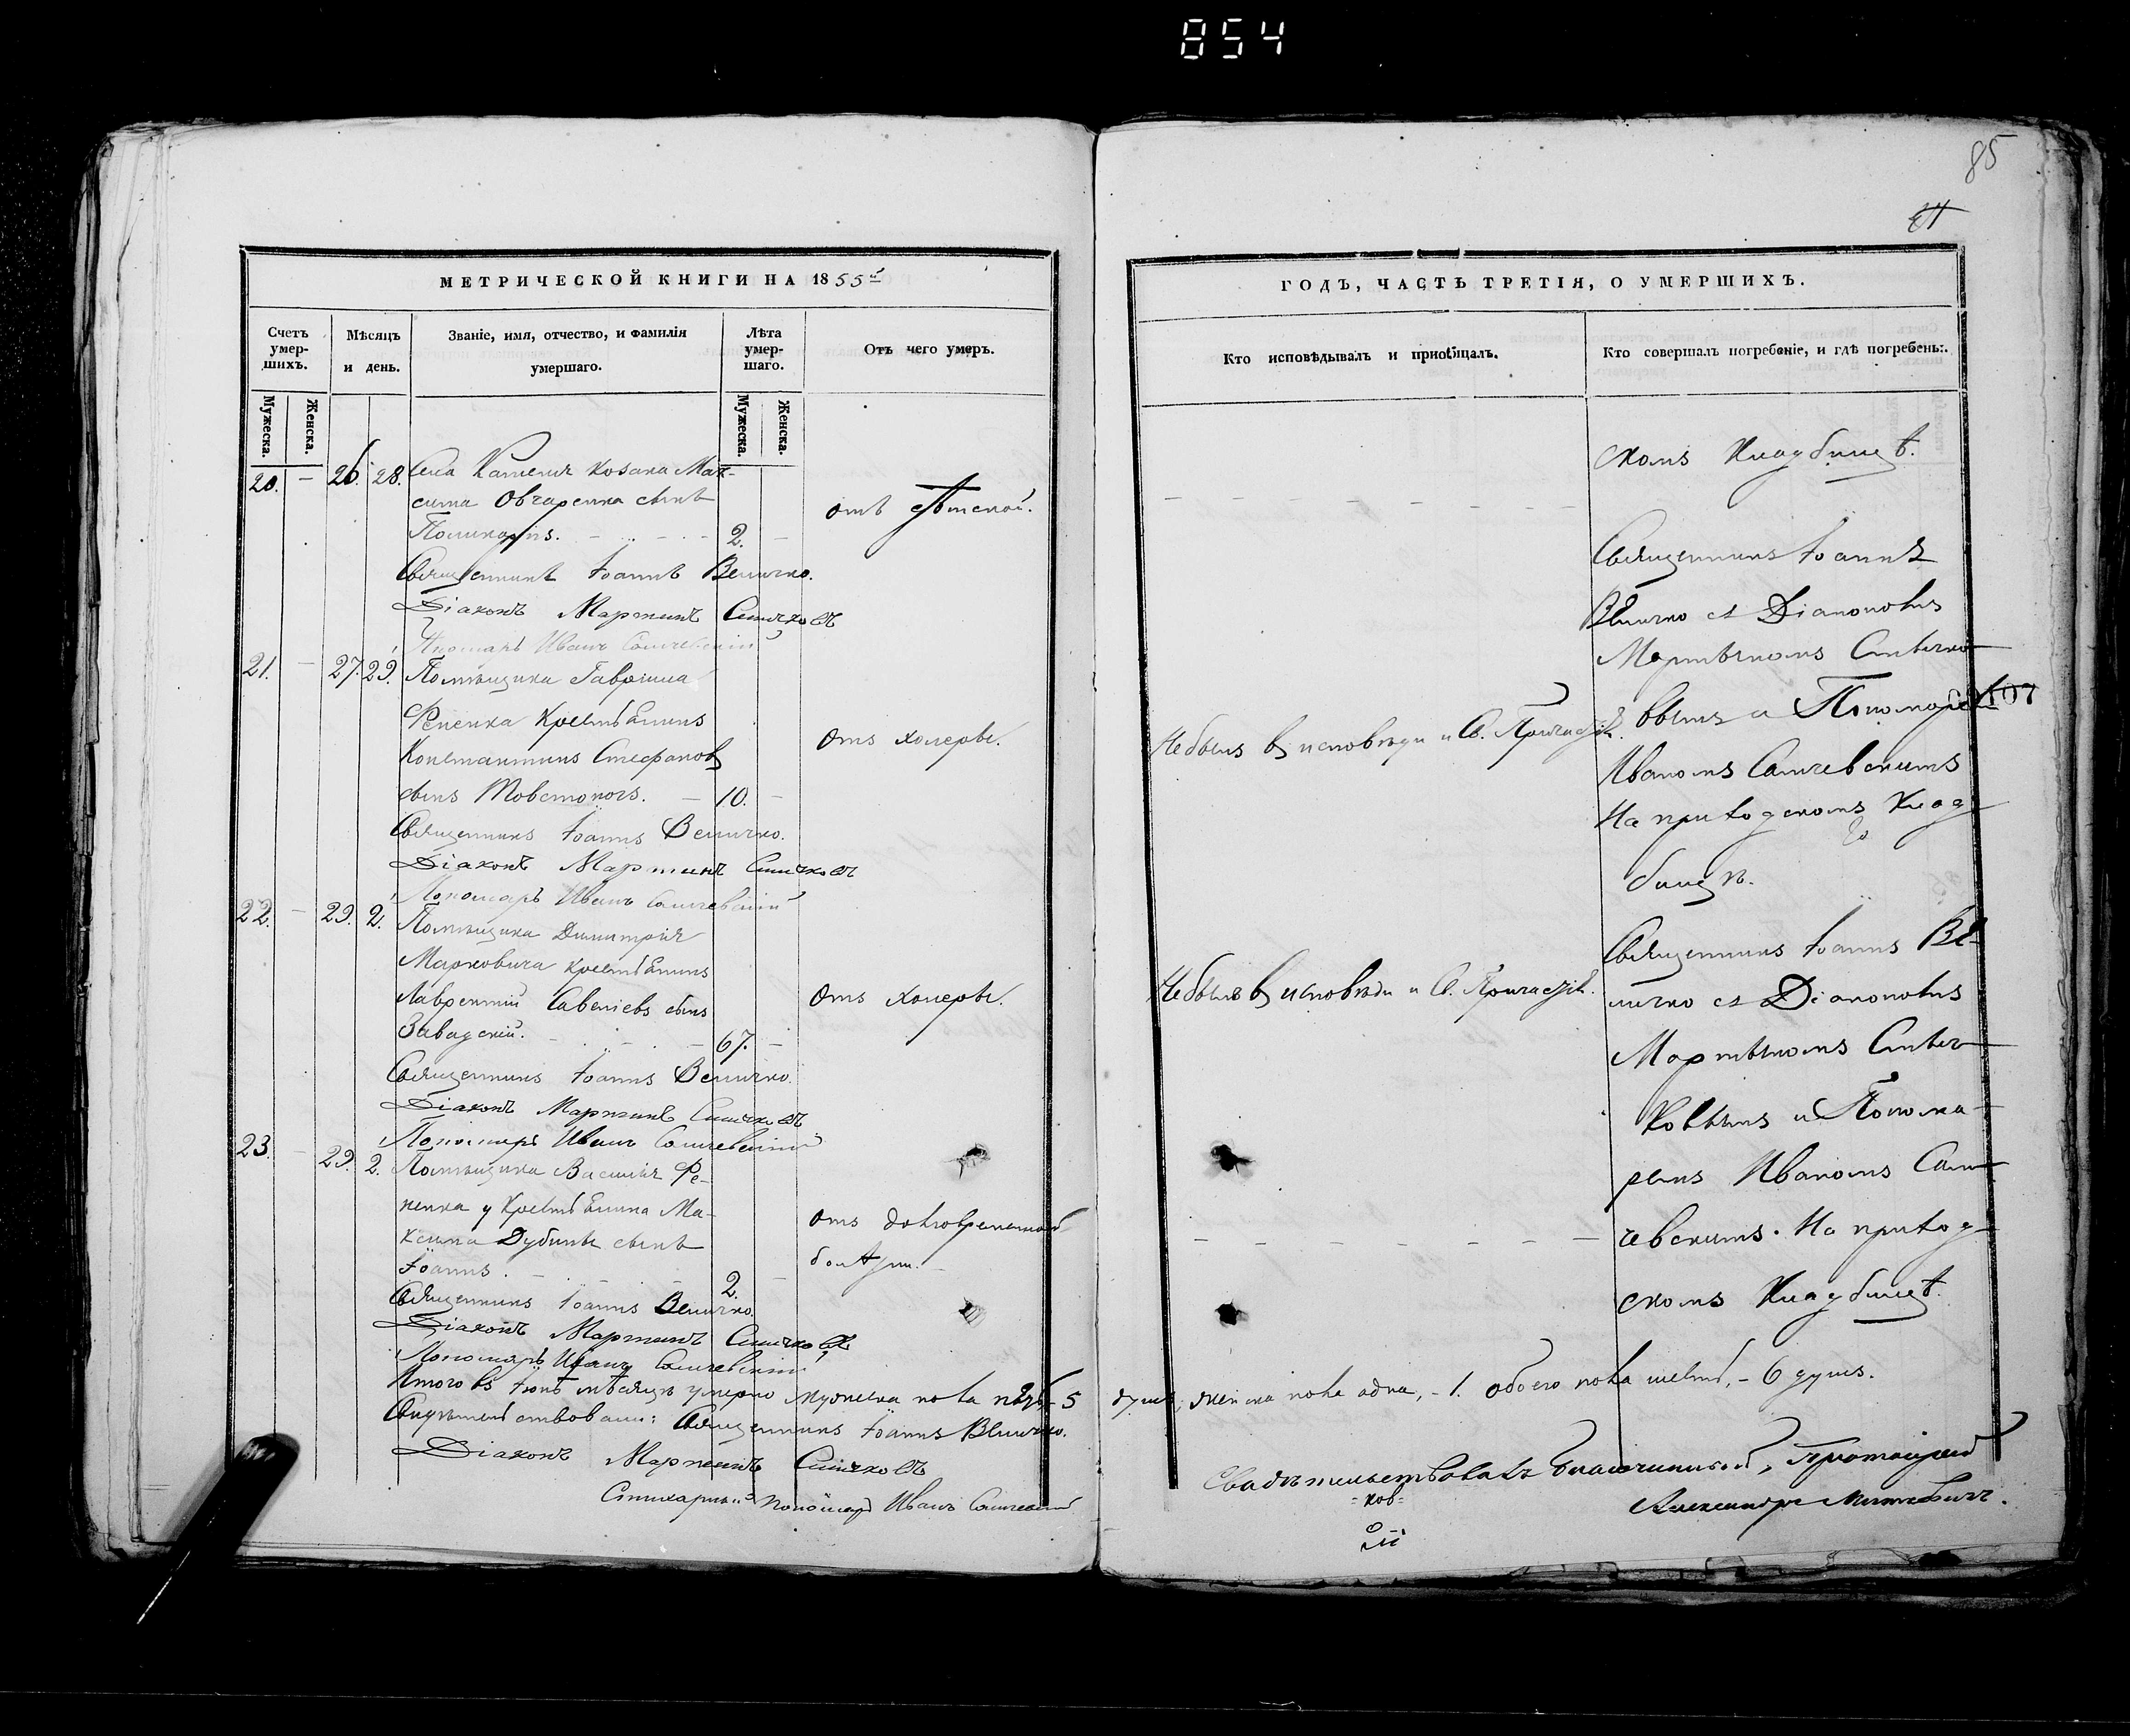 854
МЕТРИЧЕСКОЙ КНИГИ НА 1855й
Счетъ умер-шихъ.
Мѣсяцъ и день.
Званіе, имя, отчество, и фамилія умершаго.
Лѣта умер-шаго.
Отъ чего умеръ.
Мужеска. Женска.
Мужеска. Женска.
20. — 26. 28. Села Козака Мак-
сима Овчаренка сынъ
Поликарпъ. 2. —
отъ
Священникъ Іоаннъ Величко.
Діаконъ Мартинъ
Пономарь Иванъ
21. — 27. 29. Помѣщика Гавріила
Репенка Крестьянинъ
Константинъ Стефановъ
сынъ Товстоногъ. — 10. —
Отъ холеры.
Священникъ Іоаннъ Величко.
Діаконъ Мартинъ
Пономарь Иванъ
22. — 29. 2. Помѣщика Димитрія
Марковича Крестьянинъ
Лаврентій Савеліевъ сынъ
Завадскій. 67. —
Отъ холеры.
Священникъ Іоаннъ Величко.
Діаконъ Мартинъ
Пономарь Иванъ
23. — 29. 2. Помѣщика Василія Ре-
пенка у Крестьянина Ма-
ксима Дубины сынъ
Іоаннъ. 2. —
отъ долговременной
болѣзни.
Священникъ Іоаннъ Величко.
Діаконъ Мартинъ
Пономарь Иванъ
Итого въ Іюнѣ мѣсяцѣ умерло мужеска пола пять – 5
Свидѣтельствовали: Священникъ Іоаннъ Величко.
Діаконъ Мартинъ
Стихарный Пономарь Иванъ
85
ГОДЪ, ЧАСТЬ ТРЕТІЯ, О УМЕРШИХЪ.
Кто исповѣдывалъ и пріобщалъ.
Кто совершалъ погребеніе, и гдѣ погребены.
скомъ Кладбищѣ.
Священникъ Іоаннъ
Величко съ Діакономъ
Мартыномъ
вымъ и Пономаремъ
107
Не былъ въ исповѣди и Св. Причастіи.
Иваномъ
На приходскомъ Клад-
бищѣ.
Священникъ Іоаннъ Ве-
личко съ Діакономъ
Не былъ въ исповѣди и Св. Причастіи.
Мартыномъ
ковымъ и Понома-
ремъ Иваномъ
чевскимъ. На приход-
скомъ Кладбищѣ.
душъ, женска пола одна, – 1. обоего пола шесть, – 6 душъ.
Свидѣтельствовалъ Благочинный, Протоіерей
Александръ